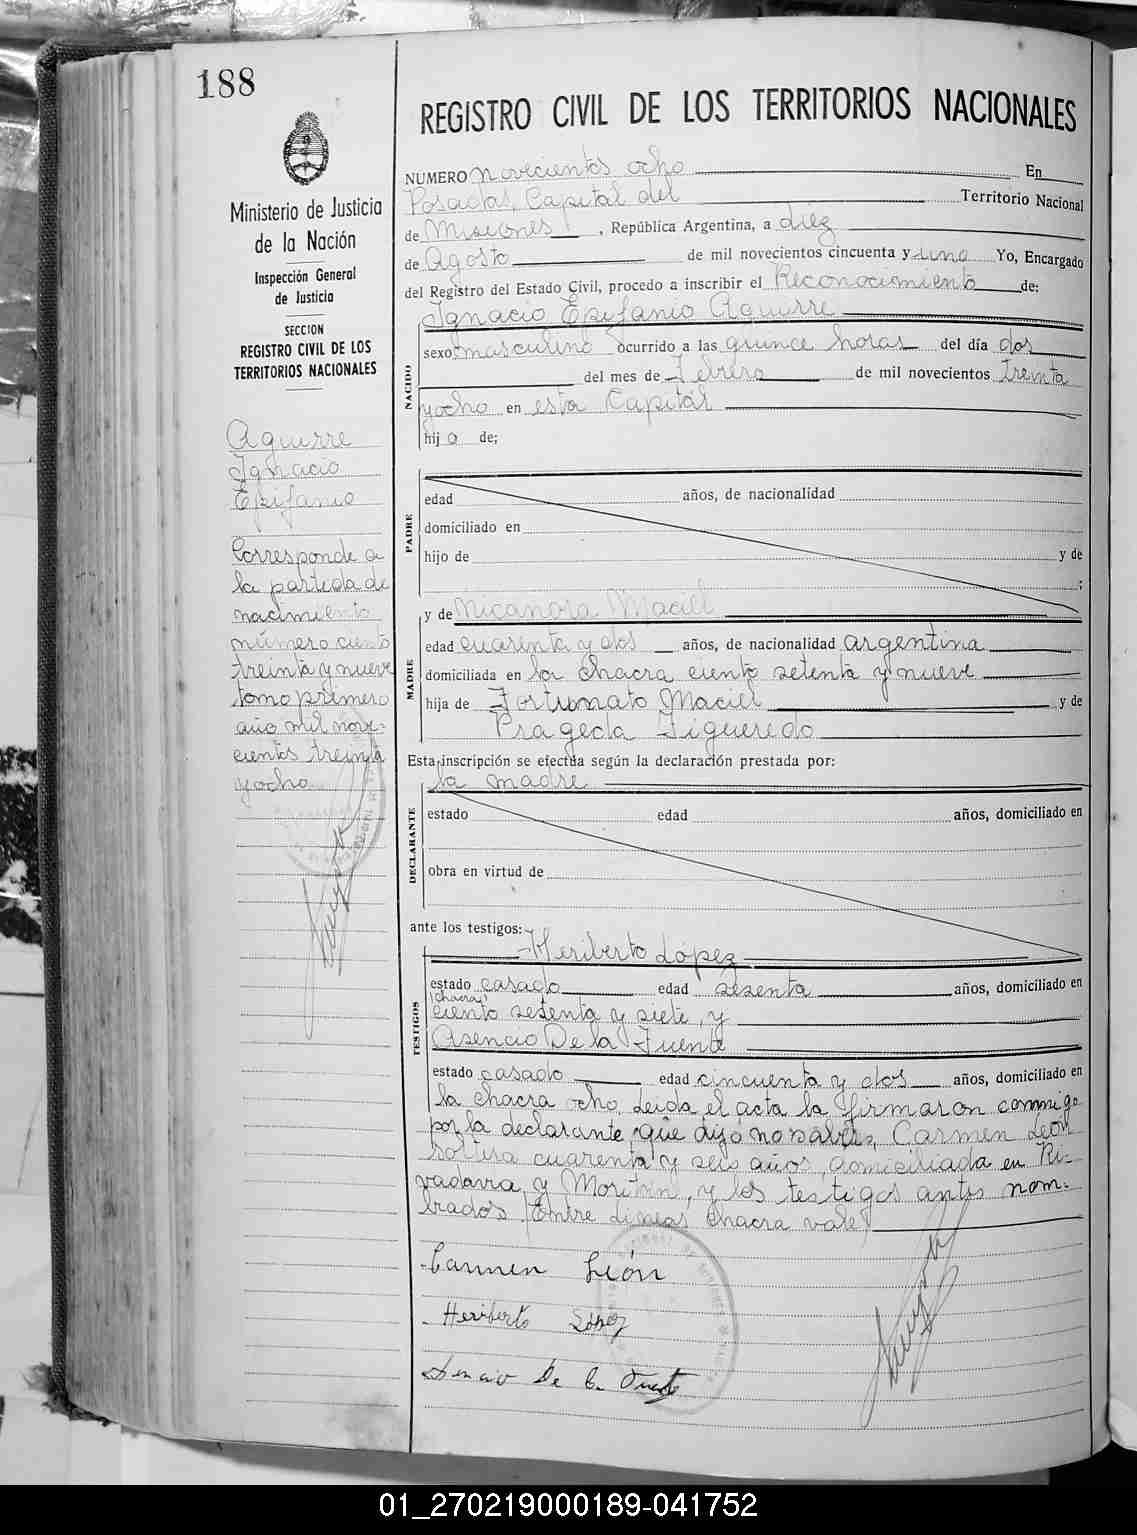 188
REGISTRO CIVIL DE LOS TERRITORIOS NACIONALES
Ministerio de Justicia
de la Nación
Inspección General
de Justicia
SECCION
REGISTRO CIVIL DE LOS
TERRITORIOS NACIONALES
Aguirre
Ignacio
Epifanio
Corresponde a
la partida de
nacimiento
número ciento
treinta y nueve
tomo primero
año mil nove-
cientos treinta
y ocho
NUMERO novecientos ocho En
Posadas, Capital del Territorio Nacional
de Misiones, República Argentina, a diez
de Agosto de mil novecientos cincuenta y uno Yo, Encargado
del Registro del Estado Civil, procedo a inscribir el Reconocimiento de:
NACIDO
Ignacio Epifanio Aguirre
sexo masculino ocurrido a las quince horas del día dos
del mes de Febrero de mil novecientos treinta
y ocho en esta Capital
hij o de;
PADRE
edad años, de nacionalidad
domiciliado en
hijo de y de
;
MADRE
y de Nicanora Maciel
edad cuarenta y dos años, de nacionalidad argentina
domiciliada en la chacra ciento setenta y nueve
hija de Fortunato Maciel y de
Prageda Figueredo
Esta inscripción se efectúa según la declaración prestada por:
DECLARANTE
la madre
estado edad años, domiciliado en
obra en virtud de
ante los testigos:
TESTIGOS
Heriberto López
estado casado edad sesenta años, domiciliado en
(chacra)
ciento setenta y siete, y
Asencio De la Fuente
estado casado edad cincuenta y dos años, domiciliado en
la chacra ocho. Leida el acta la firmaron conmigo
por la declarante, que dijo no saber, Carmen León
soltera cuarenta y seis años, domiciliada en Ri-
vadavia y y los testigos antes nom-
brados. Entre lineas chacra vale
Carmen León
Heriberto López
Asencio De la Fuente
01_270219000189-041752